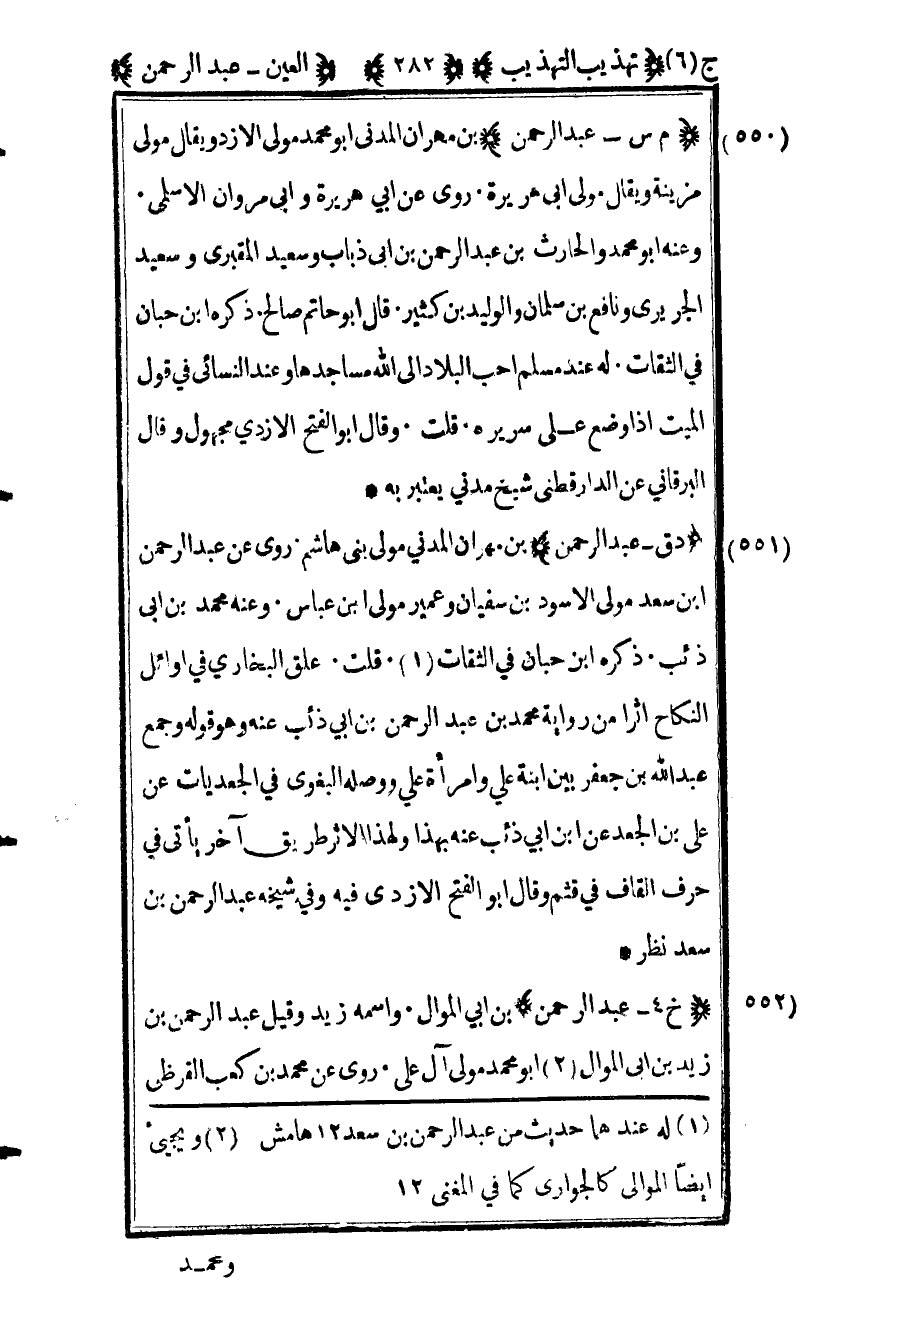 ج (٦) ﴿ تهذيب التهذيب ﴾ ﴿ ٢٨٢ ﴾ ﴿ العين ـ عبد الرحمن ﴾
(٥٥٠) ﴿ م س ـ عبدالرحمن ﴾ بن مهران المدنى ابو محمد مولى الازد ويقال مولى
مزينة ويقال مولى ابى هريرة ٠ روى عن ابي هريرة و ابى مروان الاسلمى ٠
وعنه ابو محمد والحارث بن عبدالرحمن بن ابى ذباب وسعيد المقبرى و سعيد
الجريرى ونافع بن سلمان والوليد بن كثير ٠ قال ابو حاتم صالح ٠ ذكره ابن حبان
في الثقات ٠ له عند مسلم احب البلاد الى الله مساجدها وعند النسائى في قول
الميت اذا وضع عـلى سريره ٠ قلت ٠ وقال ابو الفتح الازدي مجهول و قال
البرقاني عن الدارقطنى شيخ مدني يعتبر به *
(٥٥١) ﴿ دق ـ عبدالرحمن ﴾ بن مهران المدني مولى بنى هاشم ٠ روى عن عبدالرحمن
ابن سعد مولى الاسود بن سفيان وعمير مولى ابن عباس ٠ وعنه محمد بن ابى
ذئب ٠ ذكره ابن حبان في الثقات (١) ٠ قلت ٠ علق البخاري في اوائل
النكاح اثرا من رواية محمد بن عبد الرحمن بن ابي ذئب عنه وهو قوله وجمع
عبدالله بن جعفر بين ابنة علي وامرأة علي ووصله البغوى في الجعديات عن
علي بن الجعد عن ابن ابي ذئب عنه بهذا ولهذا الاثر طريق آخر يأتى في
حرف القاف في قثم وقال ابو الفتح الازدى فيه وفي شيخه عبدالرحمن بن
سعد نظر *
(٥٥٢) ﴿ خ ٤ ـ عبد الرحمن ﴾ بن ابي الموال ٠ واسمه زيد وقيل عبد الرحمن بن
زيد بن ابى الموال (٢) ابو محمد مولى آل علي ٠ روى عن محمد بن كعب القرظى
(١) له عندها حديث من عبدالرحمن بن سعد ١٢ هامش (٢) و يجيئ
ايضاً الموالى كالجوارى كما في المغنى ١٢
وعمـد